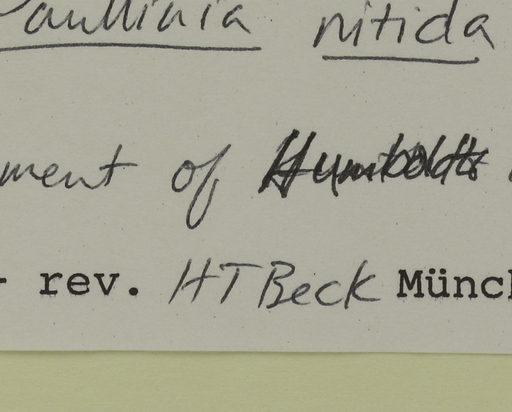 Paullinia nitida
ment of Humboldt
- rev. HT Beck Münch